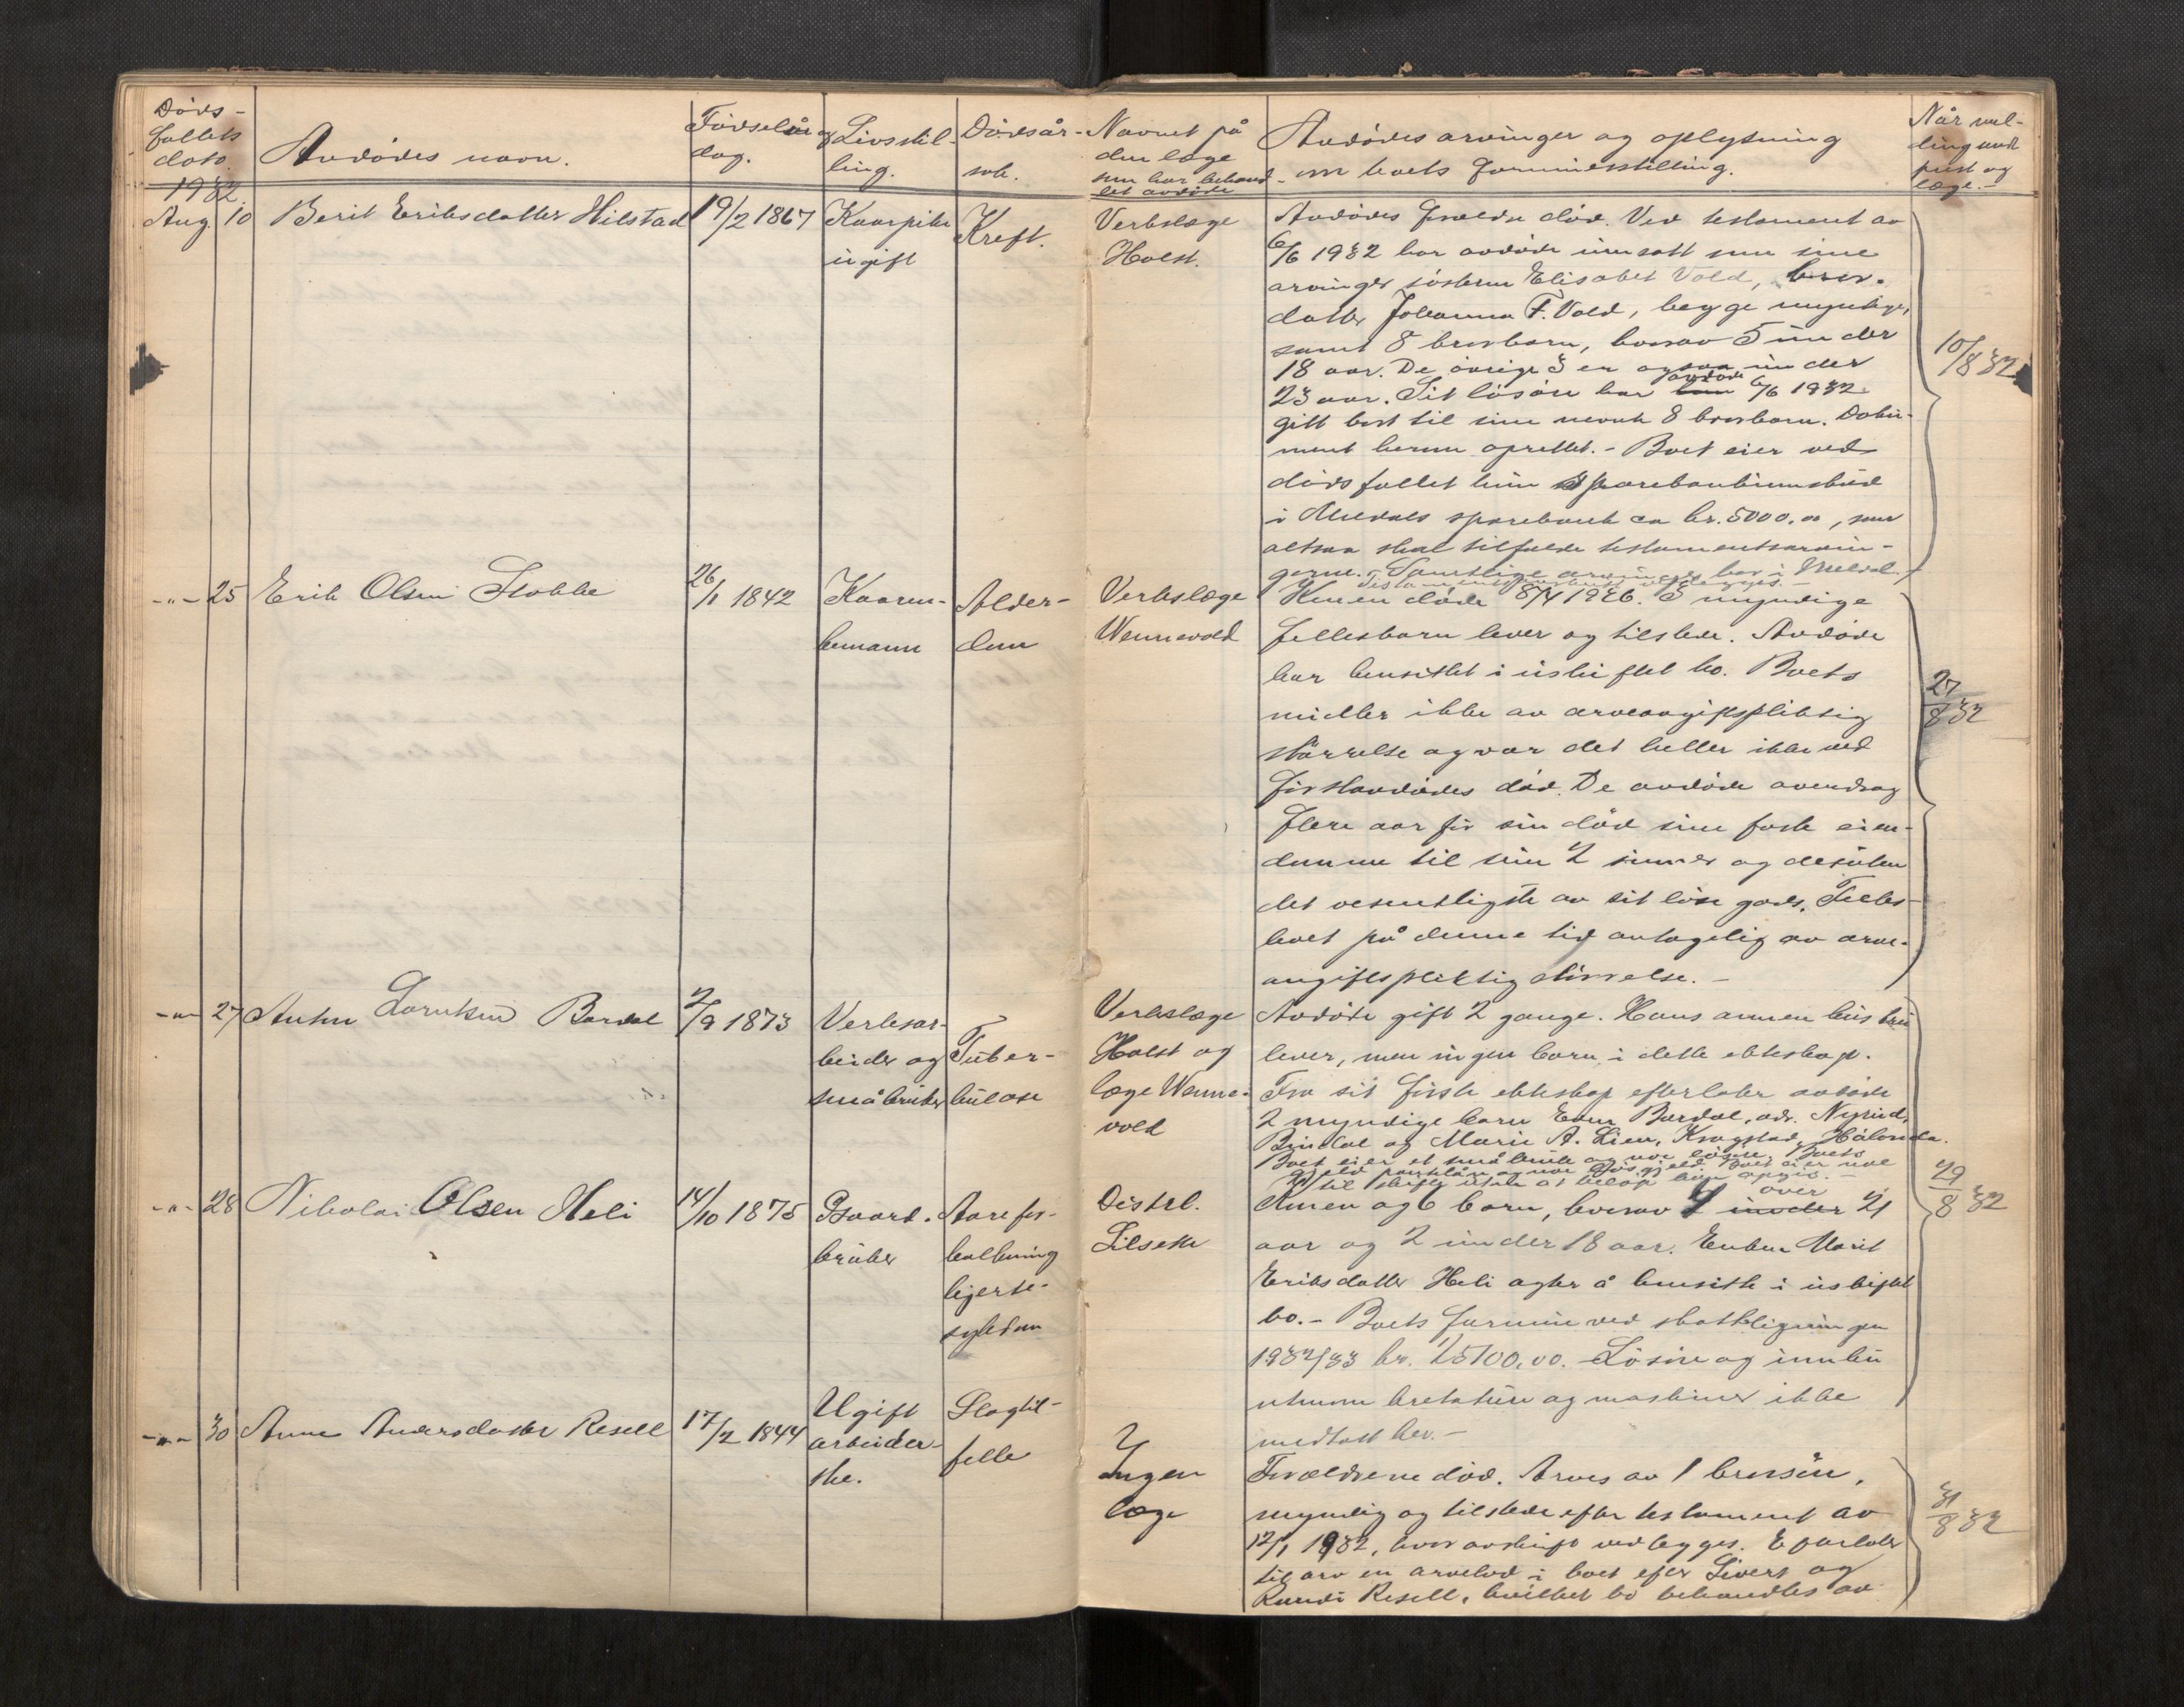 Døds-
fallets
dato.
Avdødes navn.
Fødselsår og
dag.
Livsstil-
ling.
Dødsår-
sak.
Navnet på
den læge
som har behand-
let avdøde
Avdødes arvinger og oplysning
om boets formuesstilling.
Når mel-
ding sendt
prest og
læge.-
1932
Aug. 10 Berit Eriksdatter Hilstad
19/2 1867
Kaarpike
ugift
Kreft.
Verkslæge
Holst.
Avdødes foreldre død. Ved testament av
6/6 1932 har avdøde innsatt som sine
arvinger søsteren Elisabet Vold, bror-
datter Johanna F. Vold, begge myndige,
samt 8 brorbarn, hvorav 5 under
18 aar. De øvrige 3 er ogsaa under
23 aar. Sit løsøre har avdøde 6/6 1932
gitt bort til sine nevnte 8 brorbarn. Doku-
ment herom oprettet. - Boet eier ved
dødsfallet kun sparebankinnskud
i Meldals sparebank ca kr. 5000.00, som
altsaa skal tilfalde testamentsarvin-
gerne. Samtlige arvinger bor i Meldal.
10/8 32
-"- 25 Erik Olsen Stokke
26/1 1842
Kaaren-
kemann
Alder-
dom
Verkslæge
Wennevold
Konen døde 8/4 1926. 3 myndige
fellesbarn lever og tilstede. Avdøde
har hensittet i uskiftet bo. Boets
midler ikke av arveavgiftspliktig
størrelse og var det heller ikke ved
førstavdødes død. De avdøde avendrog
flere aar før sin død sine faste eien-
domme til sine 2 sønner og desuten
det vesentligste av sit løse gods. Felles-
boet på denne tid antagelig av arve-
avgiftspliktig størrelse. -
27/8 32
-"- 27 Anton Larntsen Bardal
2/9 1873
Verksar-
beider og
småbruker
Tuber-
kulose
Verkslæge
Holst og
læge Wenne-
vold
Avdøde gift 2 gange. Hans annen hustru
lever, men ingen barn i dette ekteskap.
Fra sit første ekteskap efterlater avdøde
2 myndige barn Bardal, adr.
Bindal og Marie A. Lien, Krogstad, Hølonda.
Boet eier et småbruk og noe løsøre. Boets
-"- 28 Nikolai Olsen Heli
14/10 1875
Gaard-
bruker
Aarefor-
kalkning
hjerte-
sykdom
Distrl.
Lilseth
Konen og 6 barn, hvorav 4 over under 21
aar og 2 under 18 aar. Enken Marit
Eriksdatter Heli agter å hensitte i uskiftet
bo. - Boets formue ved skatteligningen
1932/33 kr. 15100.00. Løsøre og innbu
utenom kreaturer og maskiner ikke
medtatt her. -
29/8 32
-"- 30 Anne Andersdatter Resell
17/2 1844
Ugift
arbeider-
ske.
Slagtil-
felle
Ingen
læge
Foreldrene død. Arves av 1 brorsøn,
myndig og tilstede efter testament av
12/1 1932, hvor avskrift vedlegges. Efterlater
til arv en arvelod i boet efter Sivert og
Randi Resell, hvilket bo behandles av
31/8 32